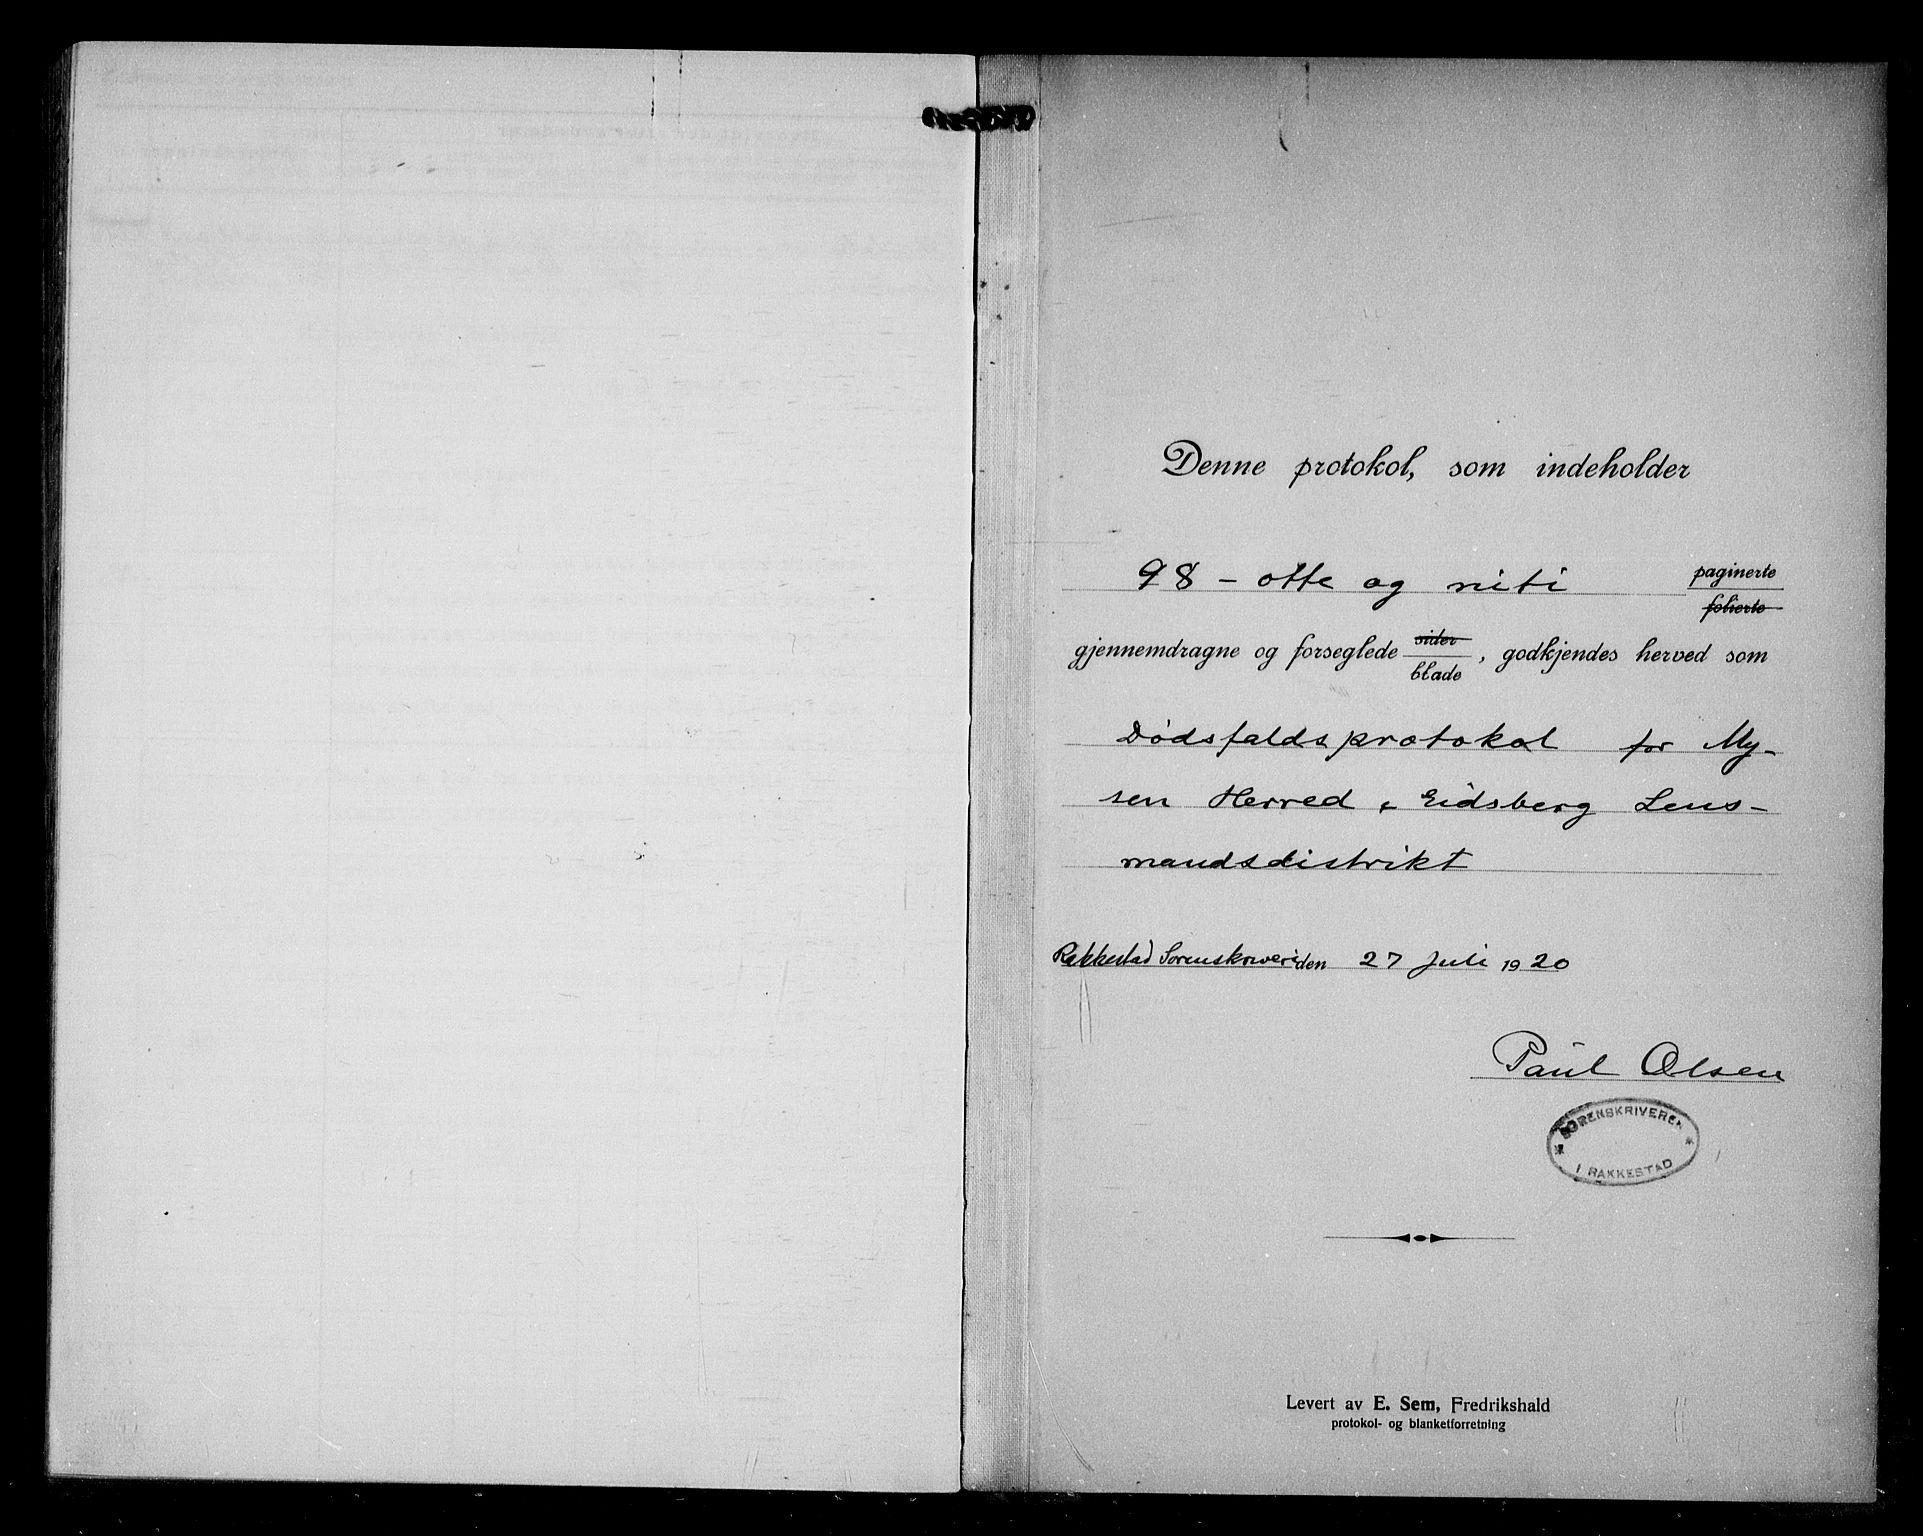 Denne protokol, som indeholder
98 - otte og niti paginerte
folierte
gjennemdragne og forseglede sider
blade , godkjendes herved som
Dødsfaldsprotokol for My-
sen Herred, Eidsberg Lens-
mandsdistrikt
Rakkestad Sorenskriveri den 27 Juli 1920
Paul Olsen
SORENSKRIVEREN
I RAKKESTAD
Levert av E. Sem, Fredrikshald
protokol- og blanketforretning